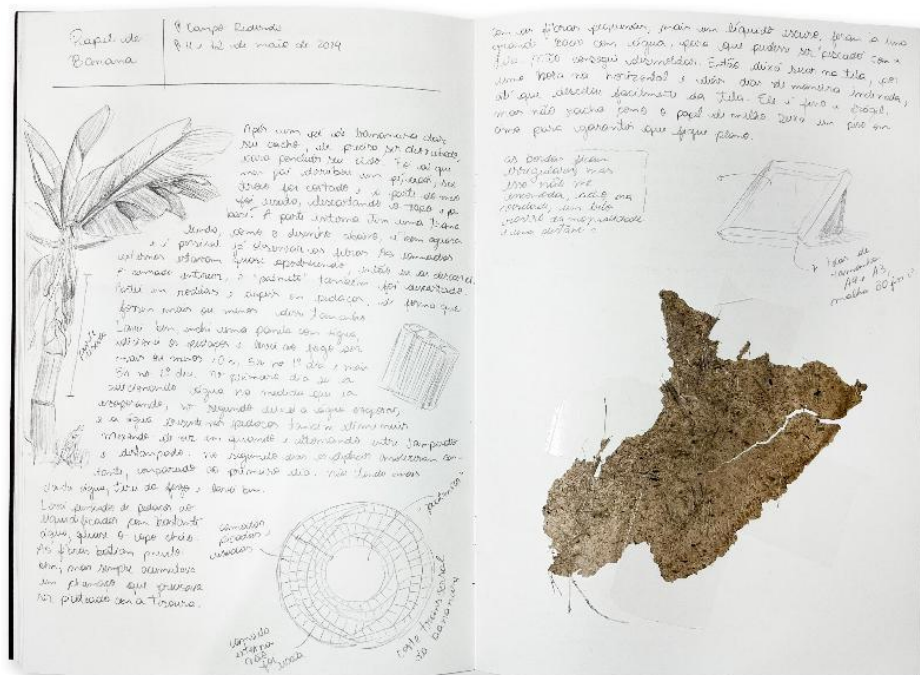 Papel de
Banana
Campo Redondo
11 e 12 de maio de 2019
Após um pé de bananeira dar
seu cacho, ele precisa ser derrubado,
para concluir seu ciclo. Foi aí que
meu pai derrubou um pé, seu
tronco foi cortado e a parte do meio
foi usada, descartando o topo e a
base. A parte interna tem uma trama
linda, como o desenho abaixo, é bem aquosa
e é possível já observar as fibras. As camadas
externas estavam quase apodrecendo, então eu as descartei.
A camada interior, o "palmito" também foi descartado.
Parti em rodelas e depois em pedaços, de forma que
foram mais ou menos desse tamanho
Lavei bem, enchi uma panela com água,
adicionei os pedaços e levei ao fogo por
mais ou menos 10h, 5h no 1º dia e mais
5h no 2º dia. No primeiro dia eu ia
adicionando água na medida que ia
evaporando, no segundo deixei a água evaporar,
e a água
mexendo de vez em quando e alternando entre tampado
e destampado. No segundo dia os
comparado ao primeiro dia. Não tendo mais
água, tirei do fogo e lavei bem.
Levei punhados de pedaços ao
liquidificador com bastante
água, quase o copo cheio.
As fibras batiam
mas sempre acumulava
um que precisava
ser cortado com a tesoura.
parte
usada
camadas
picadas e
usadas
camada
externa
não
foi usada
corte transversal
da bananeira
com as fibras pequenas, mais um líquido escuro, foram a uma
grande bacia com água, para que pudesse ser pescado com a
tela. Não consegui desmoldar. Então deixei secar na tela, por
uma hora na horizontal e dois dias de maneira inclinada,
até que descolou facilmente da tela. Ele é fino e frágil,
mas não racha como o papel de milho. Deixei um peso em
cima para garantir que fique plano.
as bordas ficam
irregulares mas
isso não me
incomoda, acho na
verdade, um belo
telas de
tamanho
A4 e A3,
malha 80 fios